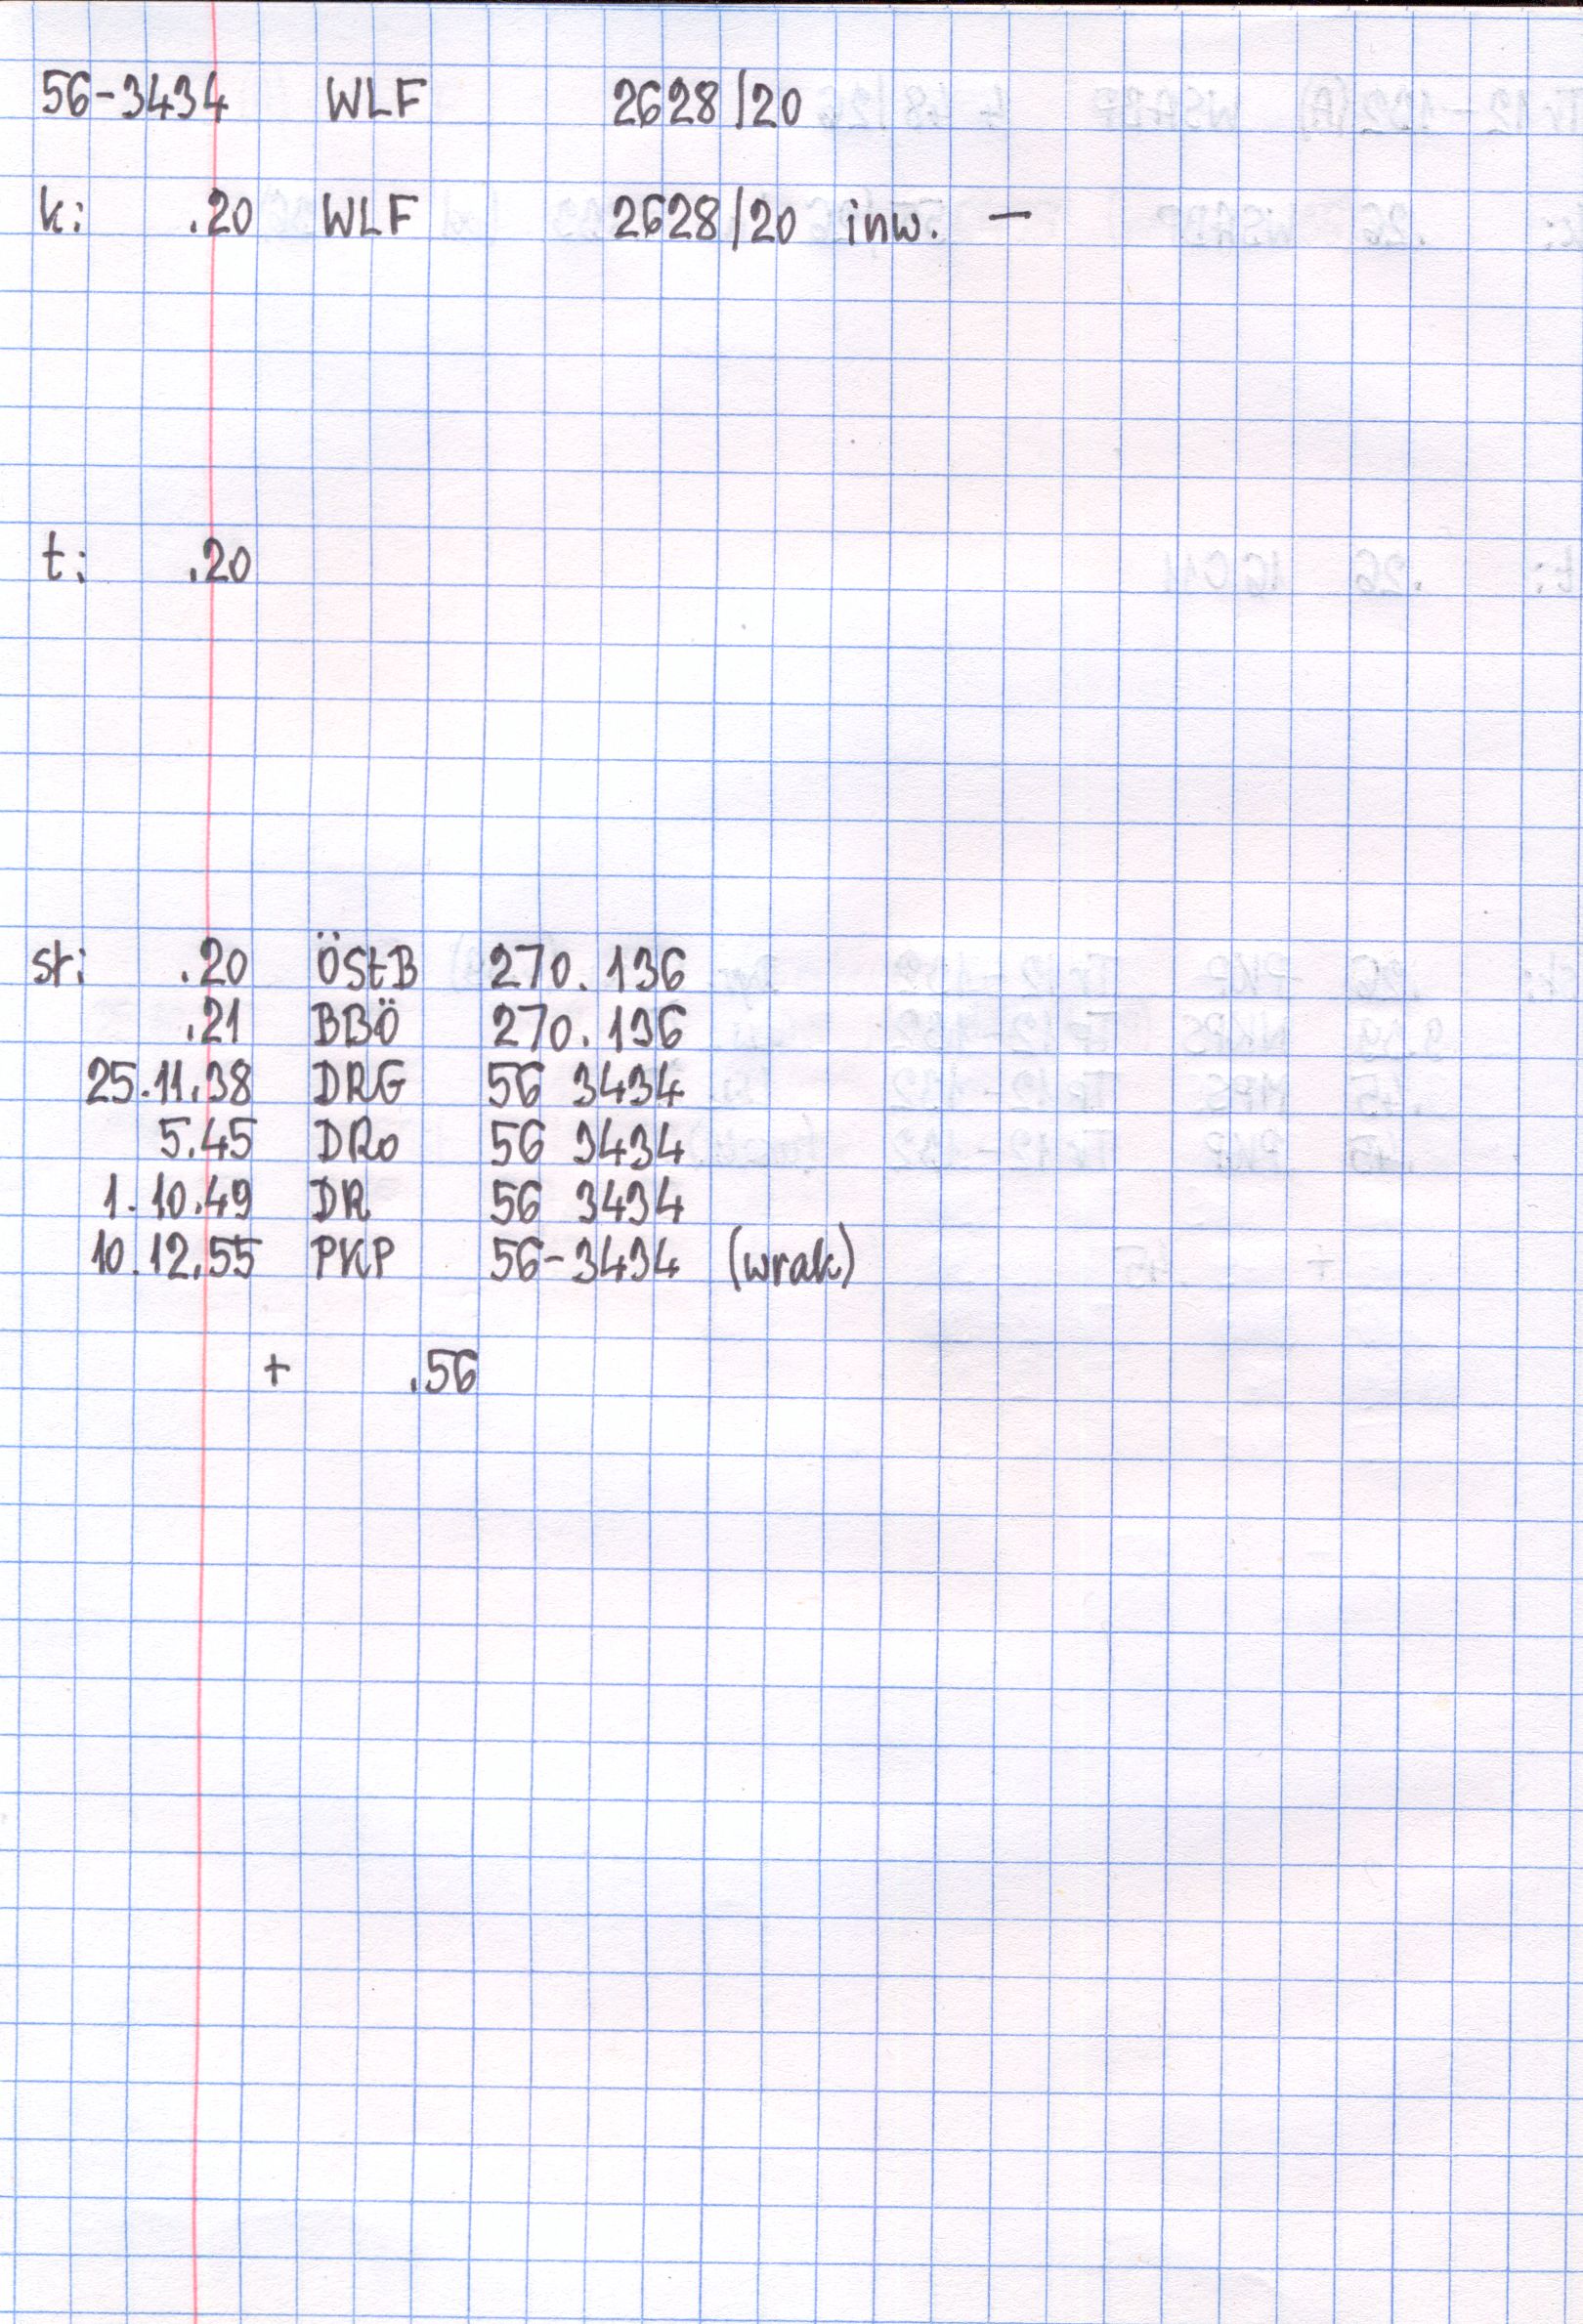 56-3434 WLF 2628/20
k: .20 WLF 2628/20 inw. —
t: .20
st: .20 ÖStB 270.136
.21 BBÖ 270.136
25.11.38 DRG 56 3434
5.45 DRo 56 3434
1.10.49 DR 56 3434
10.12.55 PKP 56-3434 (wrak)
+ .56